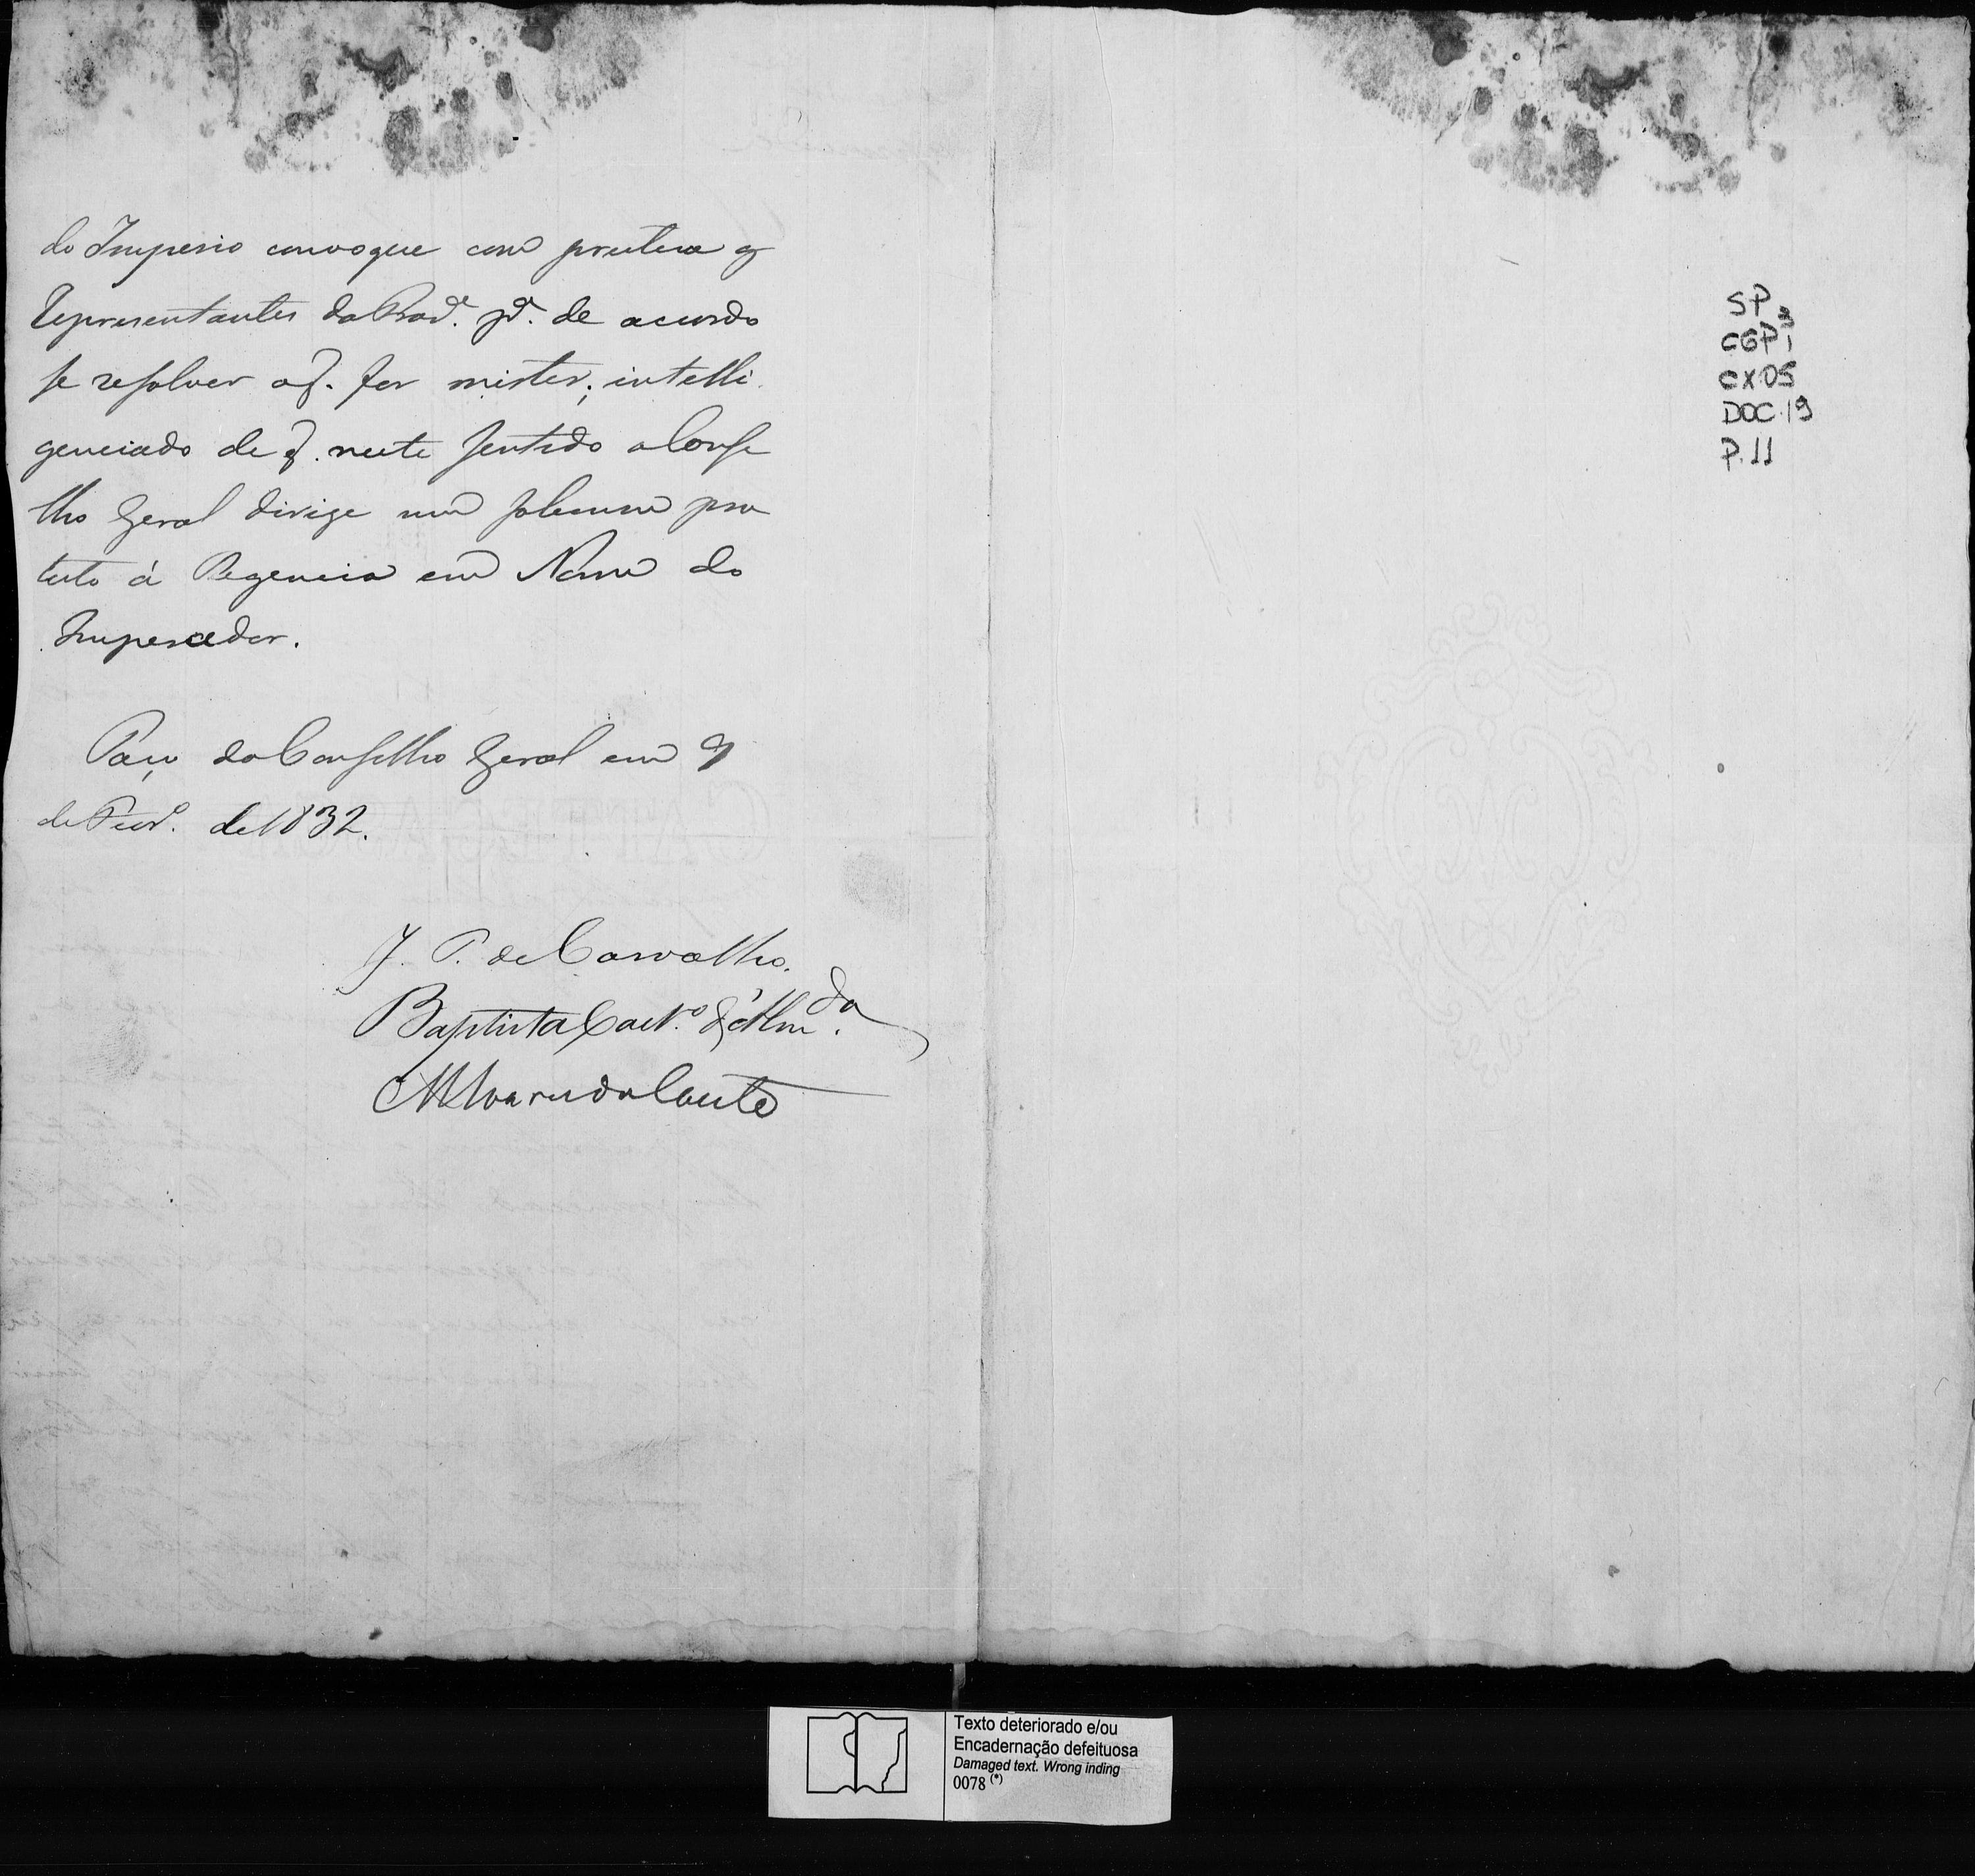 do Imperio convoque com presteza os
Representantes da Prov.ª p.ª de acordo
se resolver o q. for mister; intelli
genciado de q. neste sentido o Conse
lho Geral dirige um solemne pro
testo á Regencia em Nome do
Imperador.
Paço do Conselho Geral em 9
de Fevr.º de 1832.
J. P. de Carvalho.
Baptista Caet.º d'Alm.da
M Alvares do Couto
SP
CGP 1
CX 05
DOC. 19
P. 11
Texto deteriorado e/ou
Encadernação defeituosa
Damaged text. Wrong inding
0078 (*)